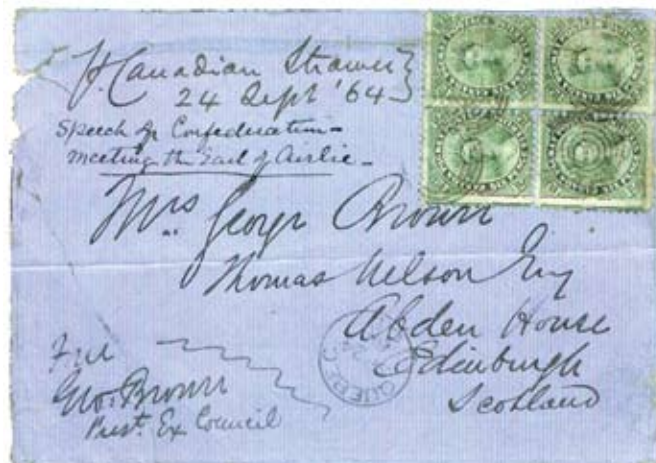 P. Canadian Steamer
24 Sept '64
Speech of Confederation -
meeting the Earl of Airlie -
Mrs. George Brown
Thomas Nelson Esq
Abden House
Edinburgh
Scotland
QUEBEC
Geo. Brown
Prest. Ex Council